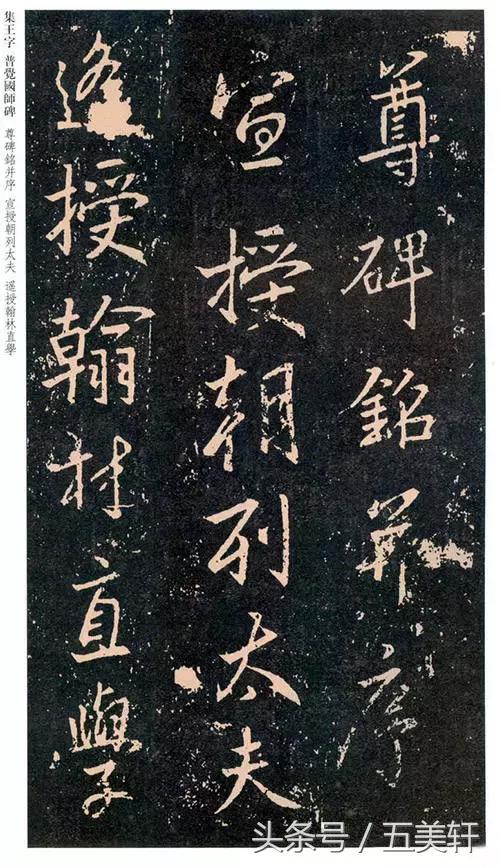 尊碑銘并序
宣授朝列太夫
遥授翰林直學
集王字 普覺國師碑 尊碑銘并序 宣授朝列太夫 遥授翰林直學
头条号 / 五美轩